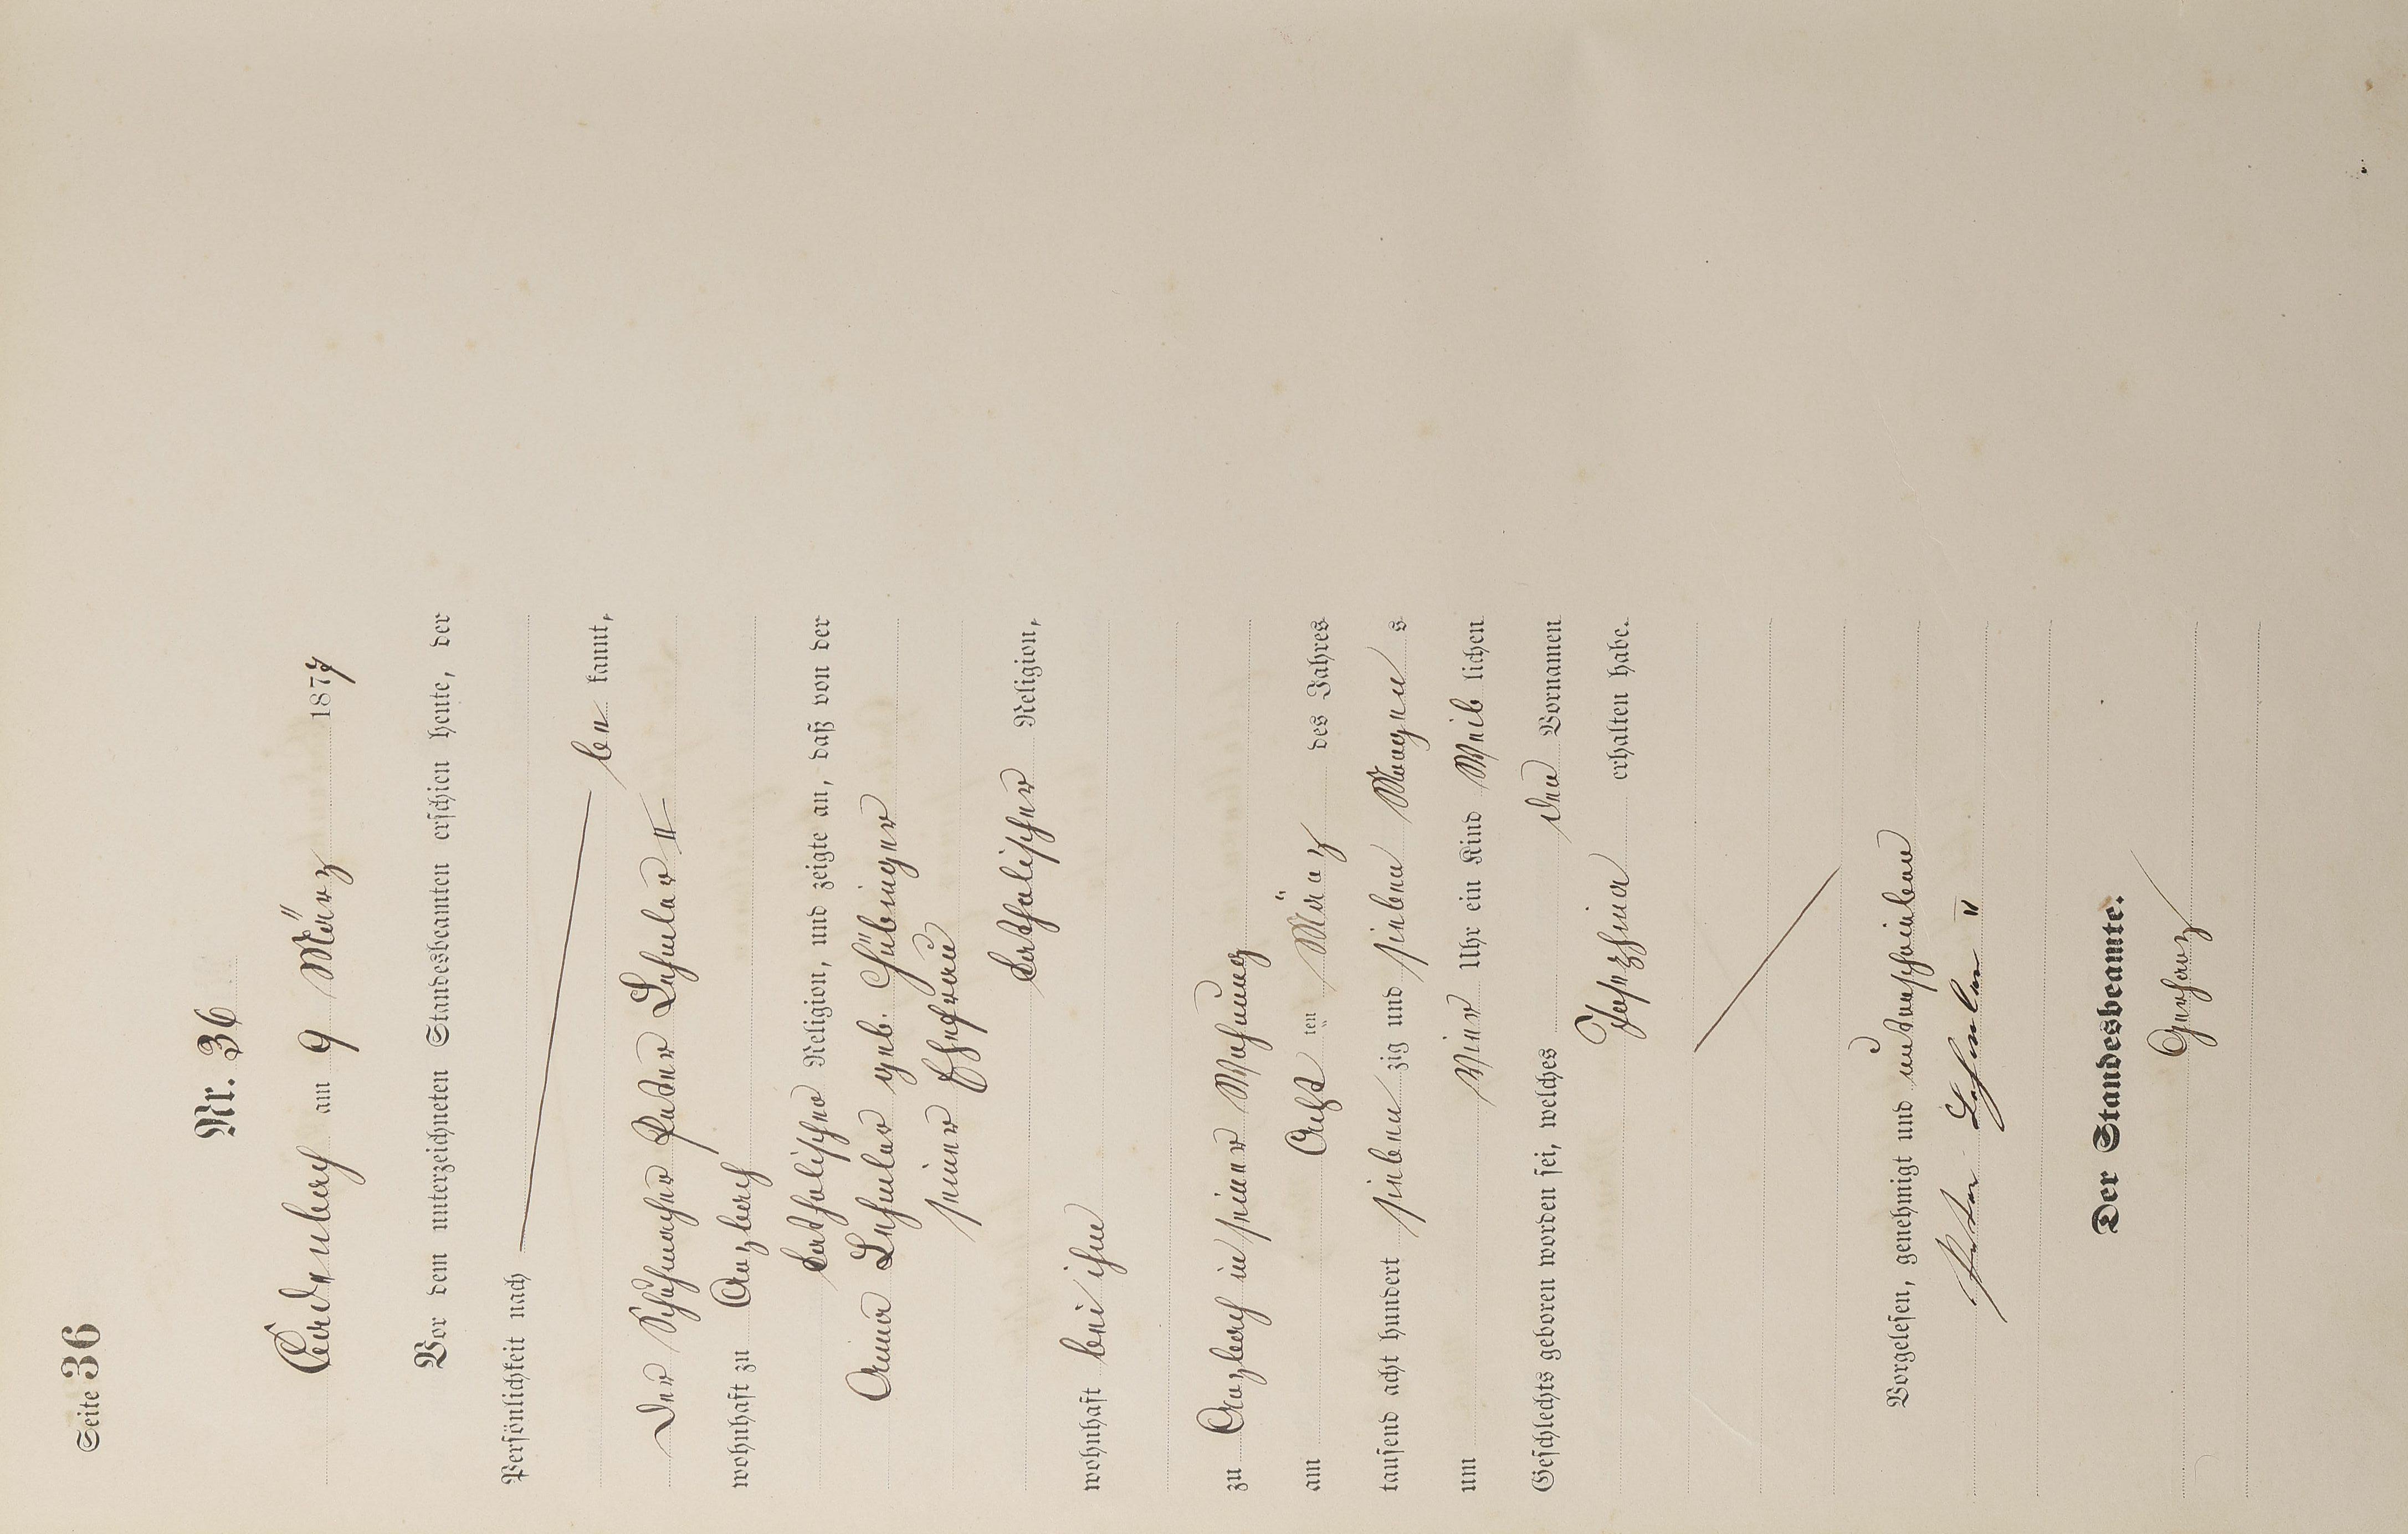 Seite 36
Nr. 36
am 9 März 1877
Vor dem unterzeichneten Standesbeamten erschien heute, der
Persönlichkeit nach
be kannt,
Der Schuhmacher Peter
wohnhaft zu
katholischer Religion, und zeigte an, daß von der
Anna geb.
seiner Ehefrau
katholischer Religion,
wohnhaft bei ihm
zu in seiner Wohnung
am Acht ten März des Jahres
tausend acht hundert sieben zig und sieben Morgens
um vier Uhr ein Kind Weib lichen
Geschlechts geboren worden sei, welches den Vornamen
erhalten habe.
Vorgelesen, genehmigt und unterschrieben
Peter II
Der Standesbeamte.